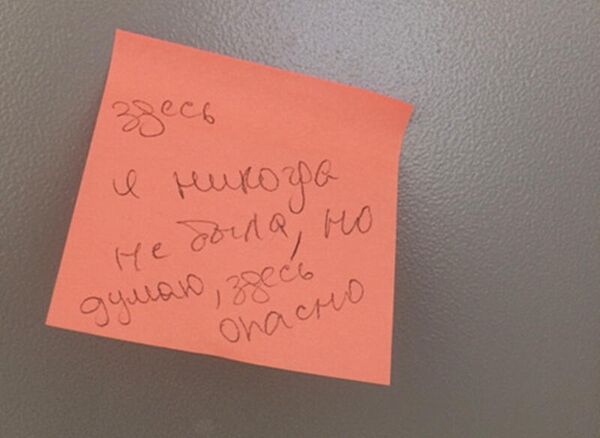 здесь
я никогда
не была, но
думаю, здесь
опасно